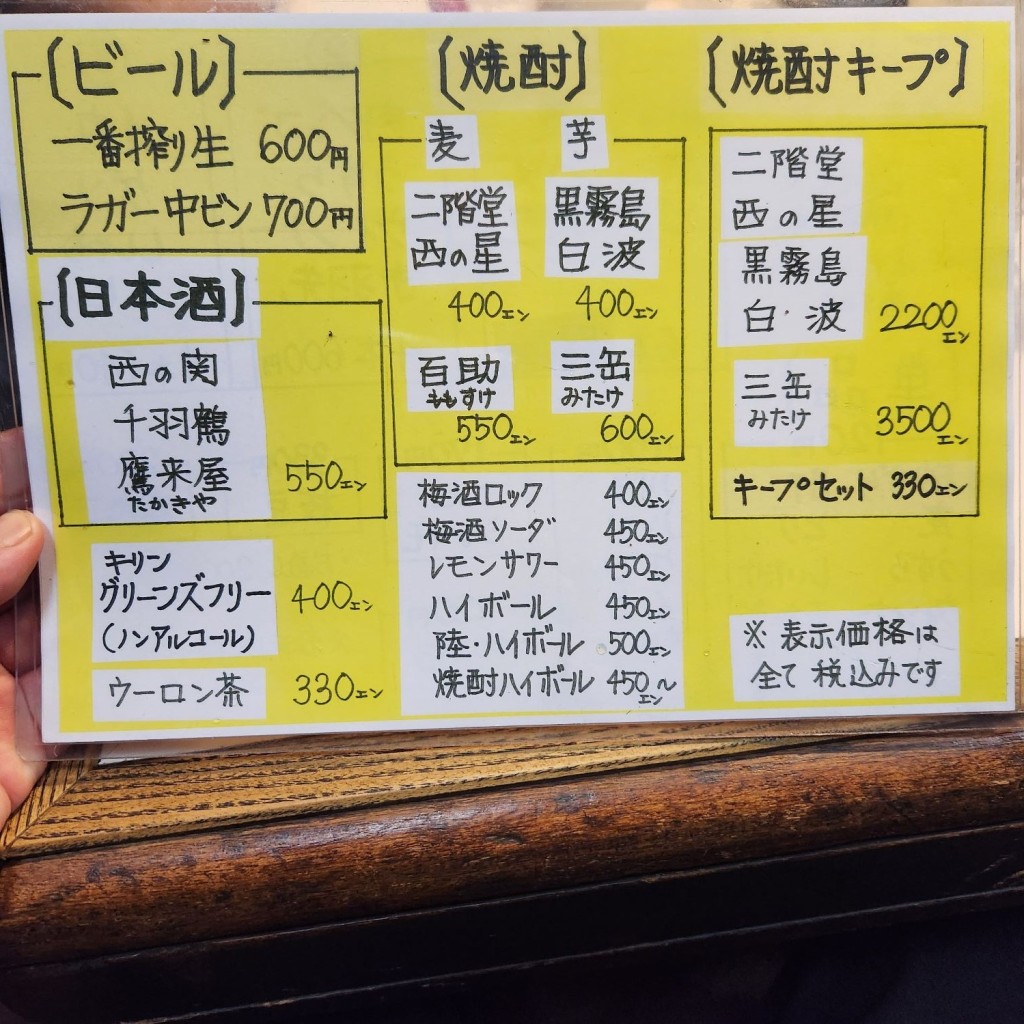 〔ビール〕
一番搾り生 600円
ラガー中ビン 700円
〔日本酒〕
西の関
千羽鶴
鷹来屋 550エン
たかきや
キリン
グリーンズフリー 400エン
(ノンアルコール)
ウーロン茶 330エン
〔焼酎〕
麦 芋
二階堂 黒霧島
西の星 白波
400エン 400エン
百助 三缶
ももすけ みたけ
550エン 600エン
梅酒ロック 400エン
梅酒ソーダ 450エン
レモンサワー 450エン
ハイボール 450エン
陸・ハイボール 500エン
焼酎ハイボール 450エン〜
〔焼酎キープ〕
二階堂
西の星
黒霧島
白・波 2200エン
三缶
みたけ 3500エン
キープセット 330エン
※表示価格は
全て税込みです